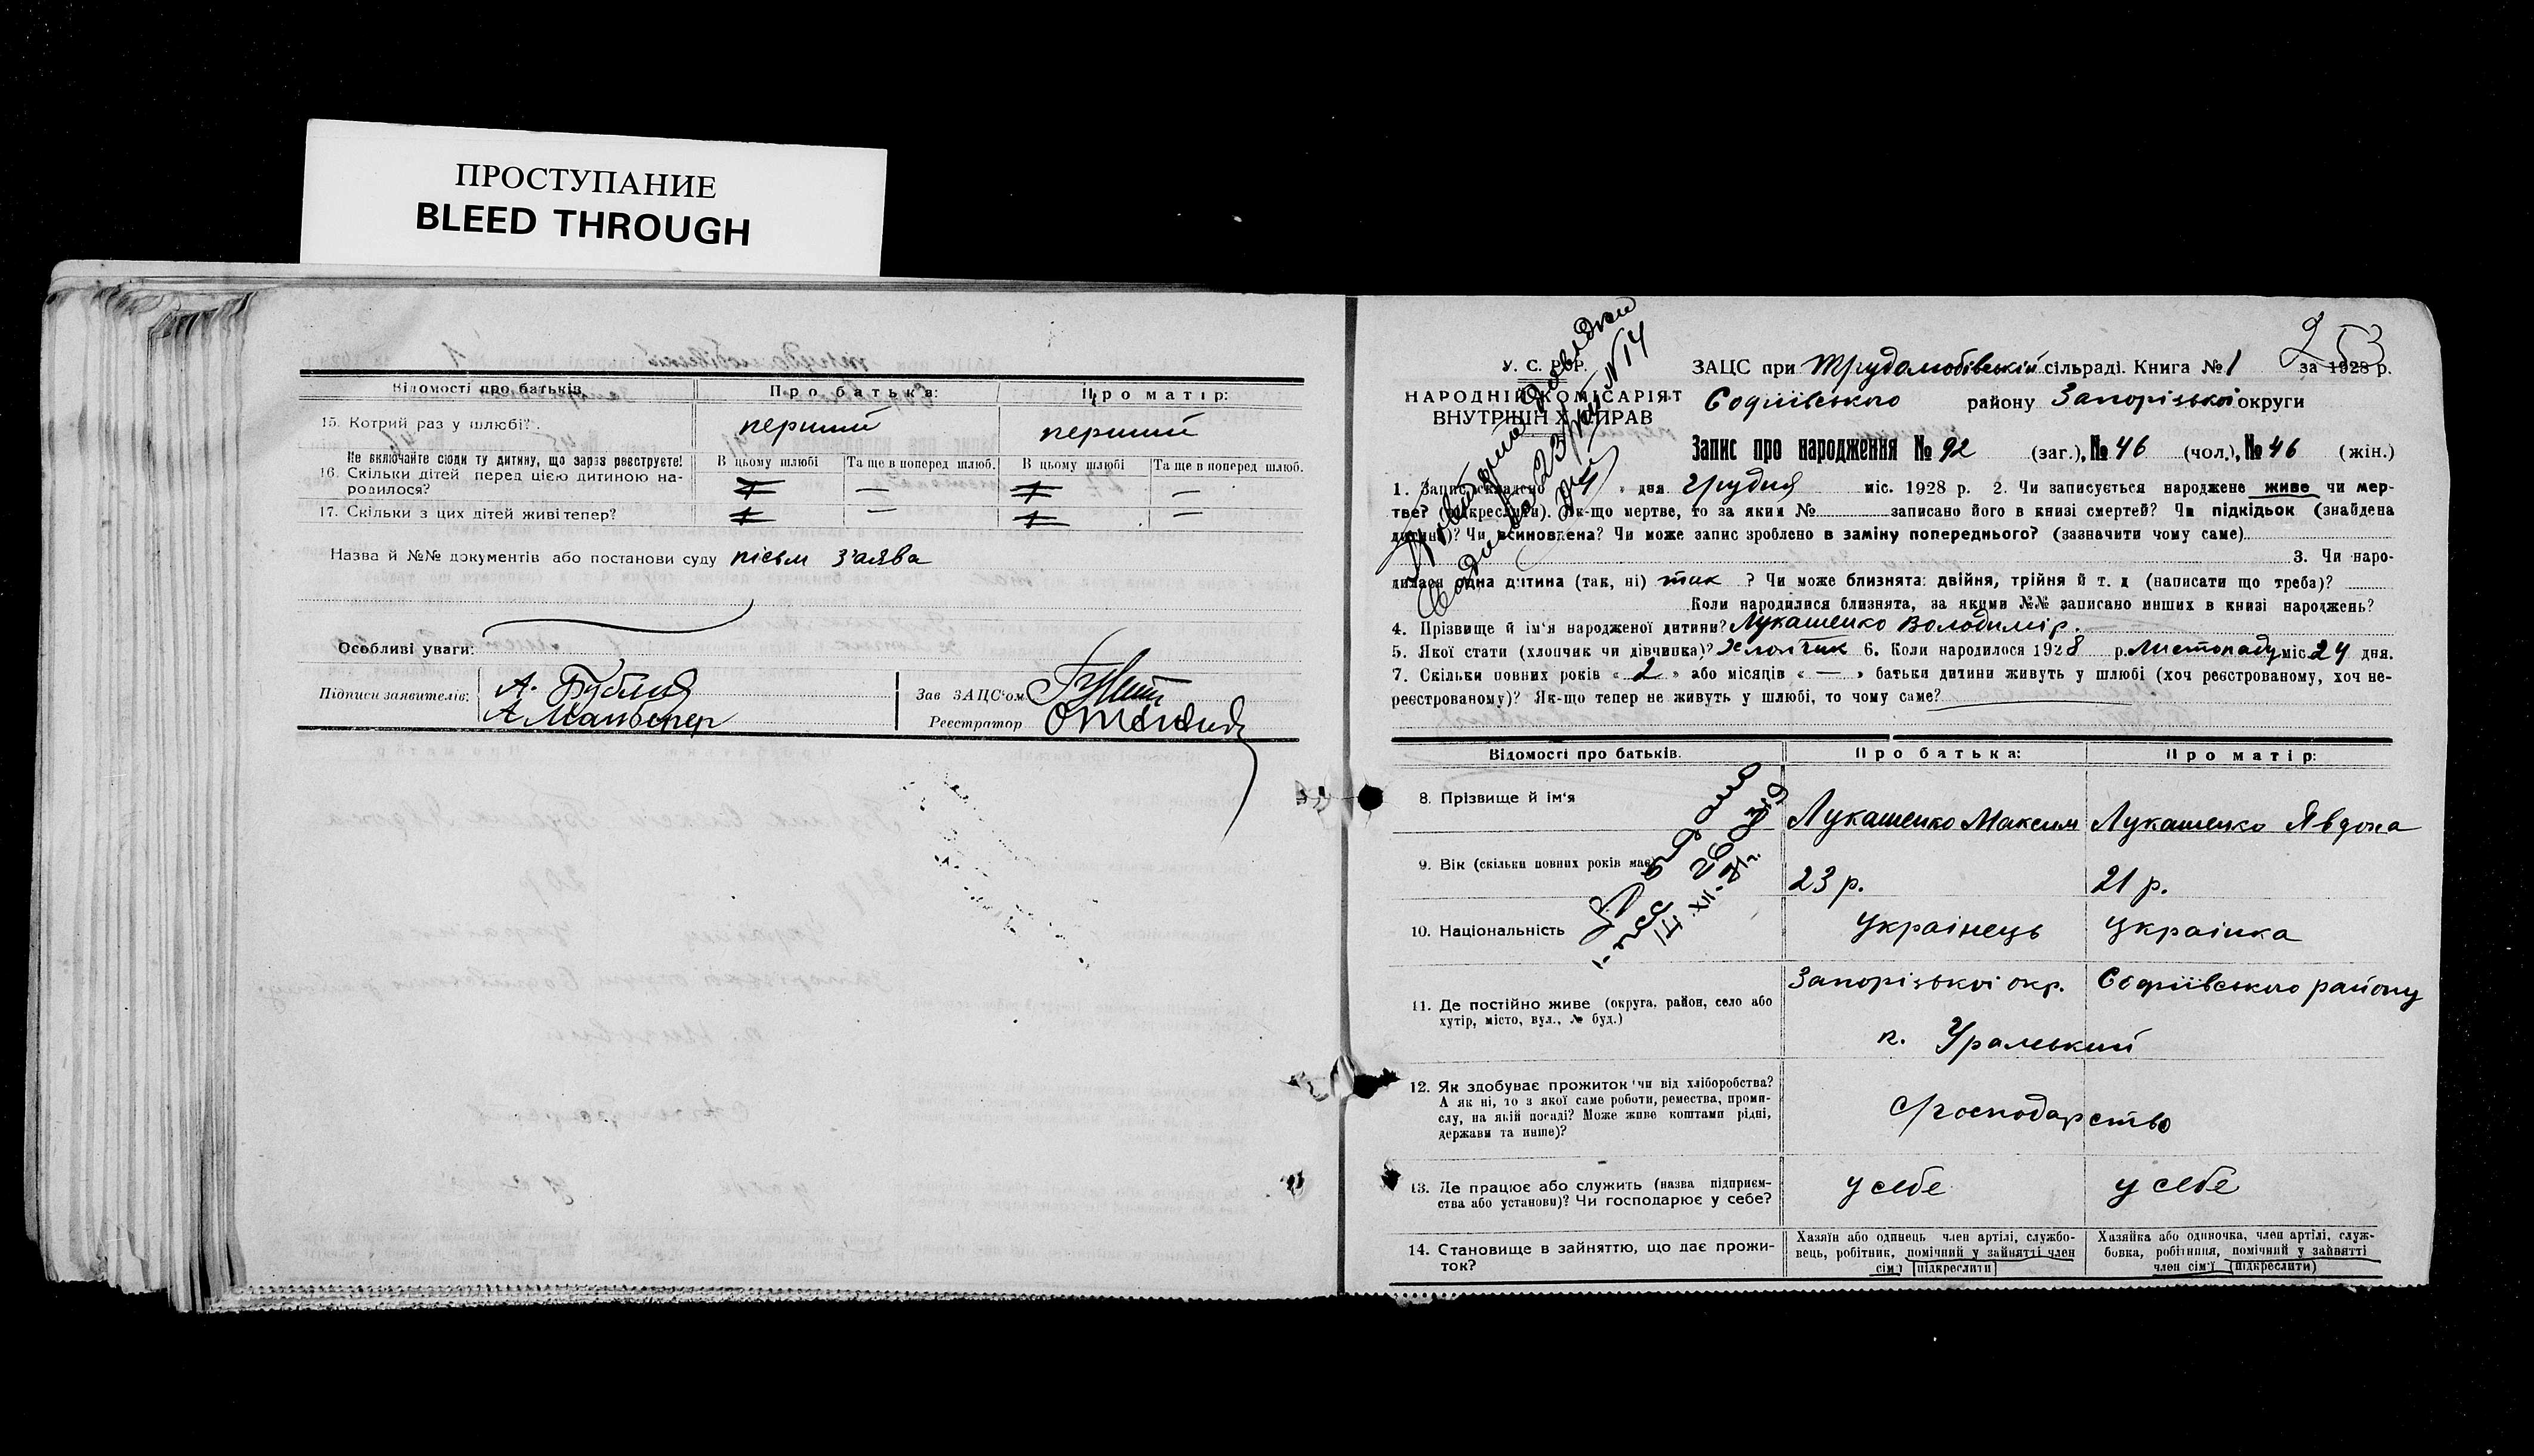 ПРОСТУПАНИЕ
BLEED THROUGH
Відомості про батьків.
Про батька:
Про матір:
15. Котрий раз у шлюбі?
перший
перший
Не включайте сюди ту дитину, що зараз реєструєте!
В цьому шлюбі
Та ще в поперед шлюб.
В цьому шлюбі
Та ще в поперед шлюб.
16. Скільки дітей перед цією дитиною на-
родилося?
—
—
17. Скільки з цих дітей живі тепер?
—
—
Назва й №№ документів або постанови суду письм з'аява
Особливі уваги:
Підписи заявителів: А. Бублик
А
Зав ЗАЦС'ом
Реєстратор
253
У. С. Р.Р.
НАРОДНІЙ КОМІСАРІЯТ
ВНУТРІШНІХ СПРАВ
ЗАЦС при Трудолюбівській сільраді. Книга № 1 за 1928 р.
Софіївського району Запорізької округи
Запис про народження № 92 (заг.), № 46 (чол.), № 46 (жін.)
1. Запис складено 4 » дня Грудня міс. 1928 р. 2. Чи записується народжене живе чи мер-
тве? (підкреслити). Як-що мертве, то за яким № записано його в книзі смертей? Чи підкідьок (знайдена
дитина)? Чи всиновлена? Чи може запис зроблено в заміну попереднього? (зазначити чому саме)
3. Чи наро-
дилася одна дитина (так, ні) так ? Чи може близнята: двійня, трійня й т. д (написати що треба)?
Коли народилися близнята, за якими №№ записано инших в книзі народжень?
4. Прізвище й ім'я народженої дитини? Лукашенко Володимір.
5. Якої стати (хлопчик чи дівчинка)? Хлопчик 6. Коли народилося 1928 р. Листопаду міс. 24 дня.
7. Скільки повних років « 2 » або місяців « — » батьки дитини живуть у шлюбі (хоч реєстрованому, хоч не-
реєстрованому)? Як-що тепер не живуть у шлюбі, то чому саме?
Відомості про батьків.
Про батька:
Про матір:
8. Прізвище й ім'я
Лукашенко Максим
Лукашенко Явдоха
9. Вік (скільки повних років має)
23 р.
21 р.
10. Національність
Українець
Українка
14. XII-
11. Де постійно живе (округа, район, село або
хутір, місто, вул., № буд.)
Запорізької окр. Софіївського району
п. Уральський
12. Як здобуває прожиток чи від хліборобства?
А як ні, то з якої саме роботи, ремества, проми-
слу, на якій посаді? Може живе коштами рідні,
держави та инше)?
с/господарство
13. Де працює або служить (назва підприєм-
ства або установи)? Чи господарює у себе?
у себе
у себе
14. Становище в зайняттю, що дає прожи-
ток?
Хазяїн або одинець член артілі, службо-
вець, робітник, помічний у зайнятті член
сім'ї (підкреслити)
Хазяйка або одиночка, член артілі, служ-
бовка, робітниця, помічний у зайнятті
член сім'ї (підкреслити)